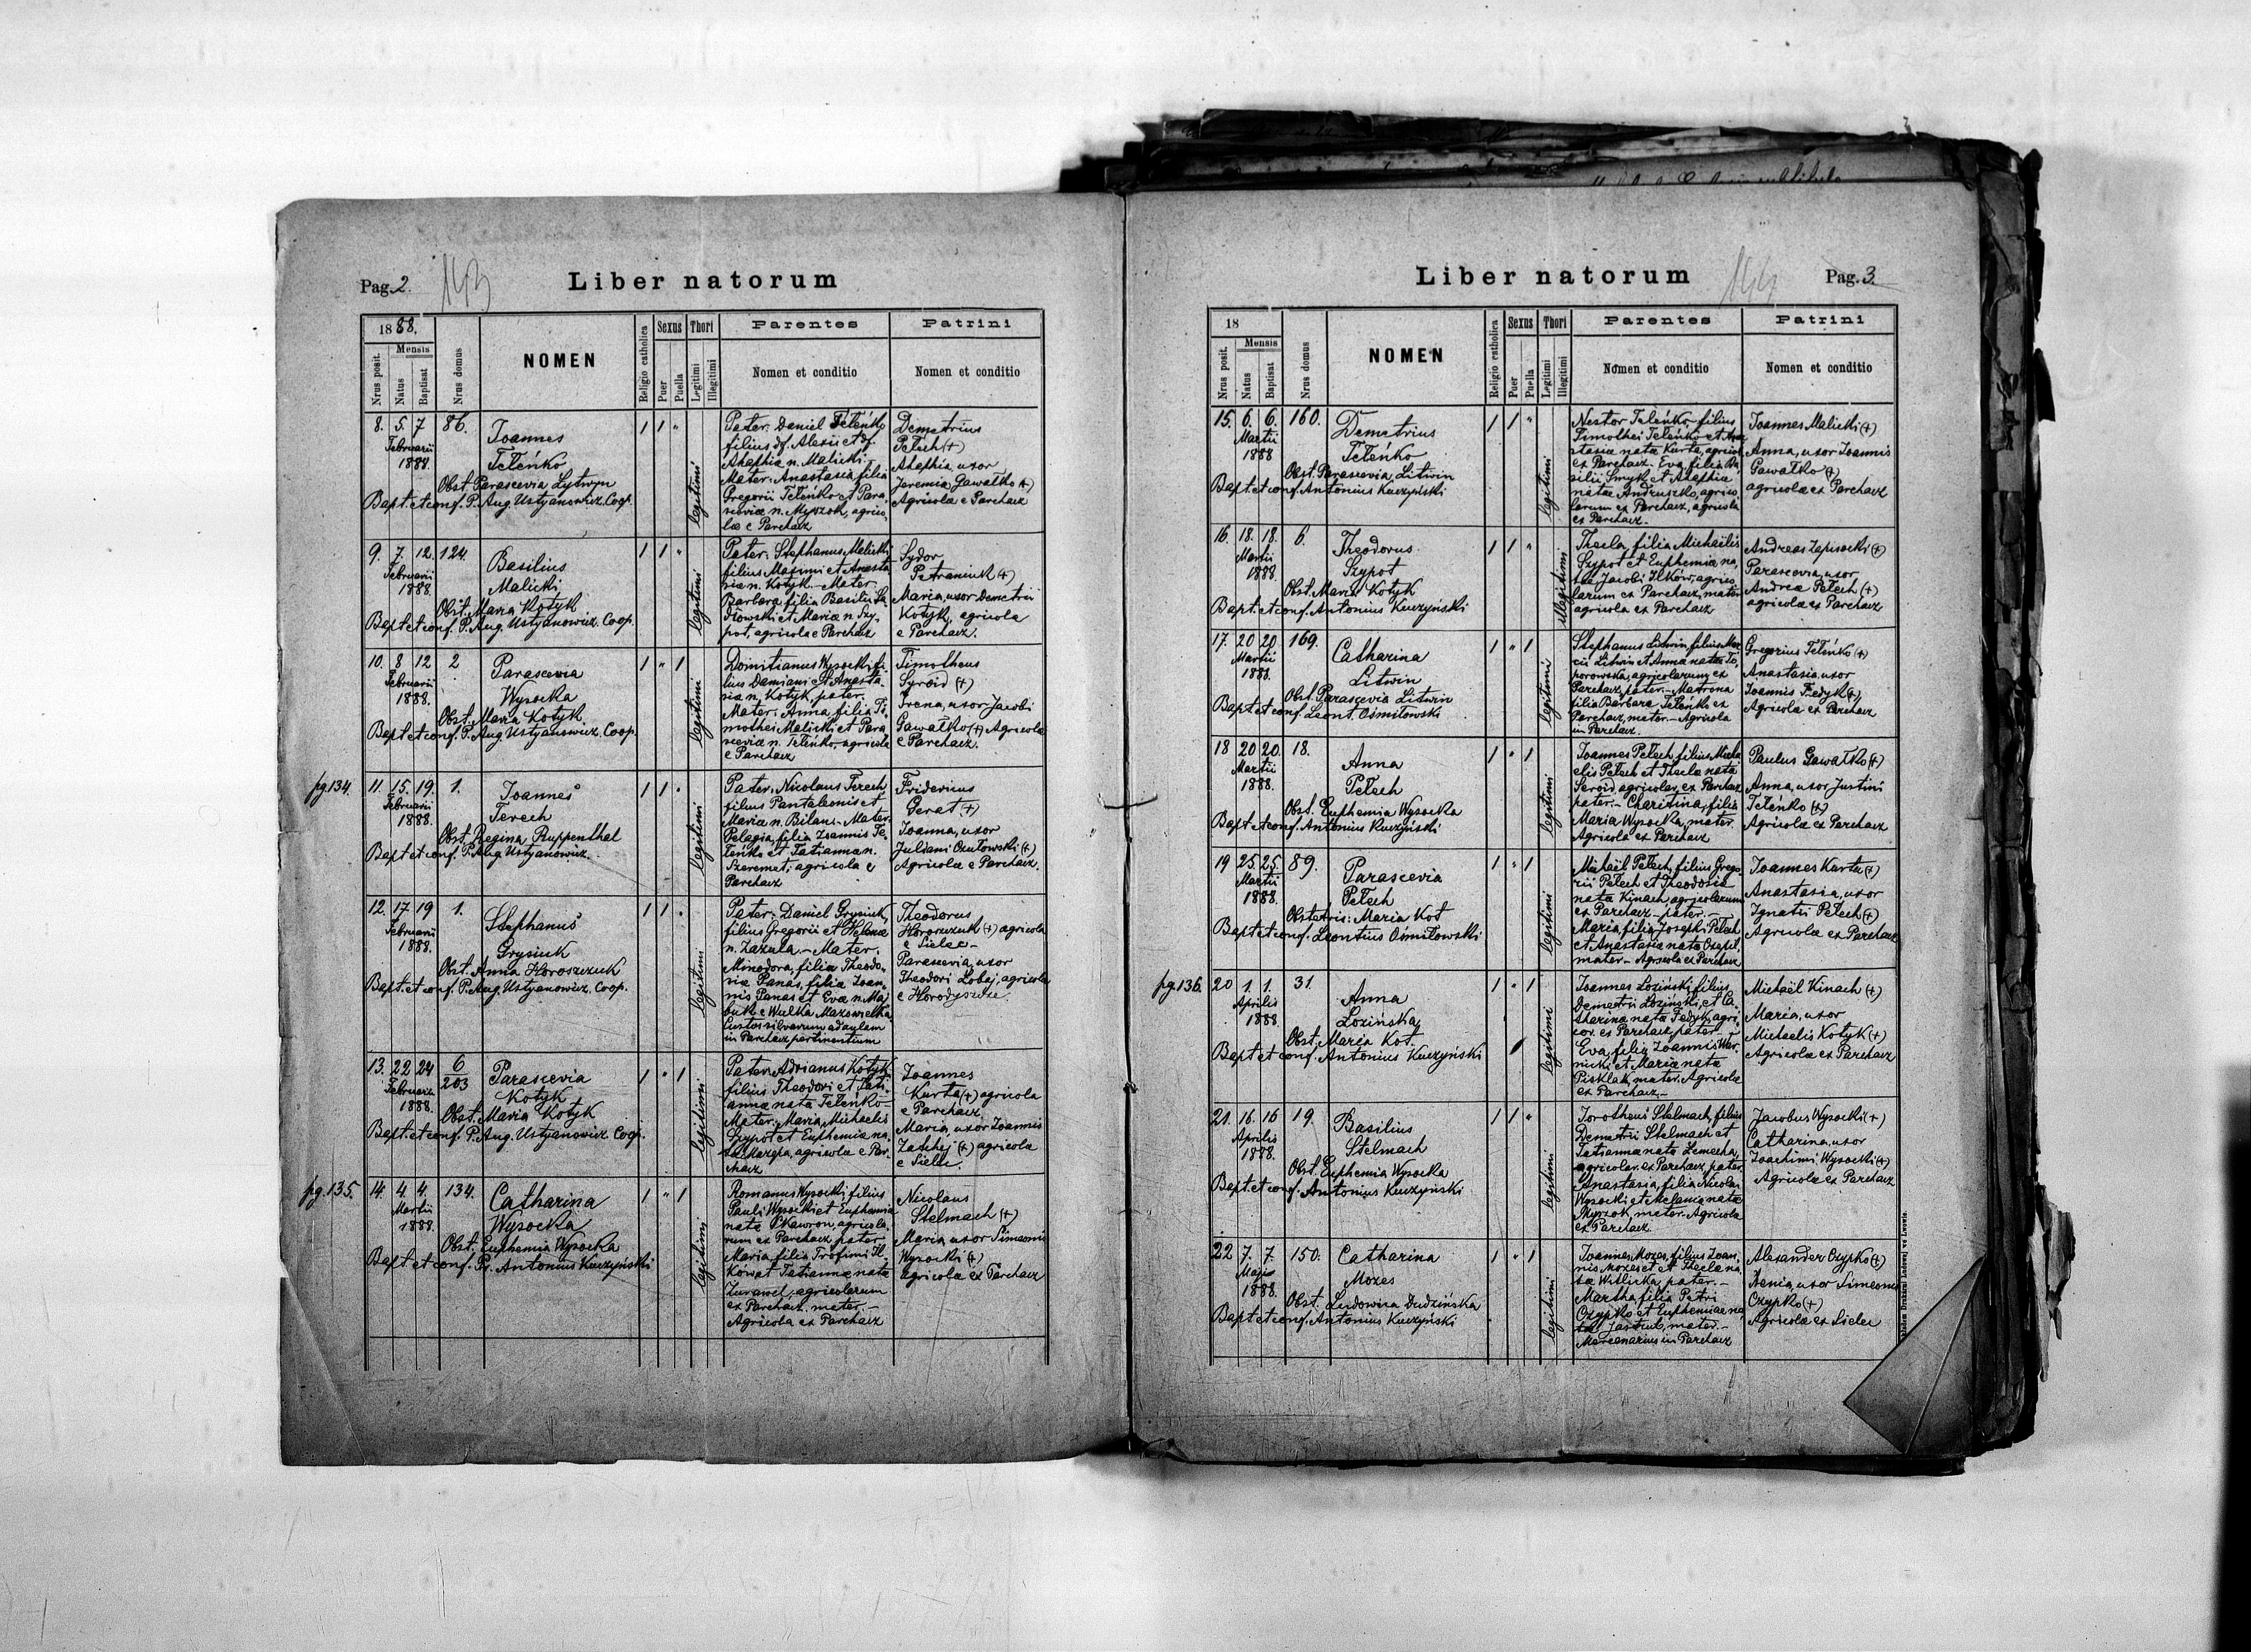 Pag. 2. 143 Liber natorum
1888.
Mensis
Nrus posit.
Natus
Baptisat
Nrus domus
NOMEN
Religio catholica
Sexus
Puer
Puella
Thori
Legitimi
Illegitimi
Parentes
Nomen et conditio
Patrini
Nomen et conditio
8. 5. 7 86.
Februarii
1888.
Joannes
Teleńko
Obst. Parascevia Lytwyn
Bapt. et conf. P. Aug. Ustyanowicz. Coop.
1 1 "
legitimi
Pater: Daniel Teleńko
filius df. Alexii et df.
Ahaphia n. Malicki.
Mater: Anastasia filia
Gregorii Teleńko et Para-
sceviæ n. Myszok, agrico-
læ e Parchacz
Demetrius
Pełech (+)
Ahaphia, uxor
Jeremiæ Gawałko (+)
Agricolæ e Parchacz
9. 7. 12. 124.
Februarii
1888.
Basilius
Malicki
Obst. Maria Kotyk
Bapt. et conf. P. Aug. Ustyanowicz. Coop.
1 1 "
legitimi
Pater: Stephanus Malicki
filius Maximi et Anasta
siæ n. Kotyk. Mater
Barbara filia Basilii Sa-
dowski et Mariæ n. Szy-
pot, agricolæ e Parchacz
Sydor
Petraniuk (+)
Maria, uxor Demetrii
Kotyk, agricola
e Parchacz.
10. 8 12 2
Februarii
1888.
Parascevia
Wysocka
Obst. Maria Kotyk
Bapt. et conf. P. Aug. Ustyanowicz. Coop.
1 " 1
legitimi
Domitianus Wysocki, fi-
lius Damiani et Anasta-
siæ n. Kotyk, pater.
Mater: Anna, filia Ti-
mothei Malicki et Para
sceviæ n. Teleńko, agricolæ
e Parchacz
Timotheus
Syroid (+)
Irena, uxor Jacobi
Gawałko (+) Agricolæ
e Parchacz.
pg. 134.
11. 15. 19. 1.
Februarii
1888.
Joannes
Terech
Obst. Regina Ruppenthal
Bapt. et conf. P. Aug. Ustyanowicz.
1 1 "
legitimi
Pater: Nicolaus Terech
filius Pantaleonis et
Mariæ n. Bilans. Mater
Pelagia, filia Joannis Te-
leńko et Tatiannæ n.
Szeremet, agricola e
Parchacz
Fridericus
Gerat (+)
Joanna, uxor
Juliani Osutowski (+)
Agricolæ e Parchacz.
12. 17. 19 1.
Februarii
1888.
Stephanus
Grysiuk
Obst. Anna Horoszczuk
Bapt. et conf. P. Aug. Ustyanowicz. Coop.
1 1 "
legitimi
Pater: Daniel Grysiuk,
filius Gregorii et Helenæ
n. Zazula. Mater.
Minodora, filia Theodo-
siæ Panas, filia Joan-
nis Panas et Evæ n. Ma-
buk e Wulka Mazowiecka,
Custos silvarum ad aulam
in Parchacz pertinentium
Theodorus
Horoszczuk (+) agricola
e Sielec
Parascevia, uxor
Theodori Lobej, agricola
e Horodyszcze.
13. 22 24 6/203
Februarii
1888.
Parascevia
Kotyk
Obst. Maria Kotyk
Bapt. et conf. P. Aug. Ustyanowicz Coop.
1 " 1
legitimi
Pater: Adrianus Kotyk
filius Theodori et Tati-
annæ nata Teleńko
Mater: Maria, Michaelis
Szypot et Euphemiæ na-
ta Mazepa, agricolæ e Par-
chacz
Joannes
Kurta (+) agricola
e Parchacz.
Maria, uxor Joannis
Zachej (+) agricola
e Sielec.
pg. 135.
14. 4. 4. 134.
Martii
1888.
Catharina
Wysocka
Obst. Euphemia Wysocka
Bapt. et conf. Pr. Antonius Kuczyński
1 " 1
legitimi
Romanus Wysocki, filius
Pauli Wysocki et Euphemia
nata Skawron, agricola-
rum ex Parchacz pater
Maria filia Trofimi Il-
ków et Tatianna nata
Żurawel, agricolarum
ex Parchacz. mater.
Agricola ex Parchacz
Nicolaus
Stelmach (+)
Maria uxor Simeonis
Wysocki (+)
agricolæ ex Parchacz
Liber natorum 144 Pag. 3.
18
Mensis
Nrus posit.
Natus
Baptisat
Nrus domus
NOMEN
Religio catholica
Sexus
Puer
Puella
Thori
Legitimi
Illegitimi
Parentes
Nomen et conditio
Patrini
Nomen et conditio
15. 6. 6. 160.
Martii
1888
Demetrius
Teleńko
Obst. Parascevia Litwin
Bapt. et conf. Antonius Kuczyński
1 1 "
legitimi
Nestor Teleńko, filius
Timothei Teleńko et Ana
stasia nata Kurta, agricol.
ex Parchacz. Eva, filia Ba-
silii Smyk et Ahaphia
nata Andruszko, agrico-
larum ex Parchacz, agricola
ex Parchacz.
Joannes Malicki (+)
Anna, uxor Joannis
Gawałko (+)
agricolæ ex Parchacz
16. 18. 18. 6.
Martii
1888.
Theodorus
Szypot
Obst. Maria Kotyk
Bapt. et conf. Antonius Kuczyński
1 1 "
illegitimi
Thecla, filia Michaëlis
Szypot et Euphemiæ na-
tæ Jacobi Ilków, agrico-
larum ex Parchacz, mater
agricola ex Parchacz
Andreas Zapisocki (+)
Parascevia, uxor
Andreæ Pełech (+)
agricolæ ex Parchacz
17. 20 20 169.
Martii
1888.
Catharina
Litwin
Obst. Parascevia Litwin
Bapt. et conf. Leont. Ośmiłowski
1 " 1
legitimi
Stephanus Litwin, filius Mar-
cii Litwin et Anna nata To-
porowska, agricolarum ex
Parchacz, pater. Matrona
filia Barbara Teleńko ex
Parchacz, mater. Agricola
in Parchacz.
Gregorius Teleńko (+)
Anastasia, uxor
Joannis Fedyk (+)
Agricolæ ex Parchacz
18 20 20. 18.
Martii
1888.
Anna
Pełech
Obst. Euphemia Wysocka
Bapt. et conf. Antonius Kuczyński
1 " 1
legitimi
Joannes Pełech, filius Micha
elis Pełech et Theclæ nata
Seroid, agricolar. ex Parchacz
pater. Charitina, filia
Maria Wysocka, mater.
Agricola ex Parchacz
Paulus Gawałko (+)
Anna, uxor Justini
Teleńko (+)
Agricolæ ex Parchacz
19 25 25 89.
Martii
1888.
Parascevia
Pełech
Obstetrix: Maria Kot
Bapt. et conf. Leontius Ośmiłowski
1 " 1
legitimi
Michaël Pełech, filius Grego-
rii Pełech et Theodosia
nata Kinach, agricolarum
ex Parchacz pater.
Maria, filia Josephi Pełech
et Anastasia nata Osepil,
mater. Agricola ex Parchacz
Joannes Kurta (+)
Anastasia, uxor
Ignatii Pełech (+)
Agricolæ ex Parchacz
pg. 136.
20 1. 1. 31.
Aprilis
1888
Anna
Łozińska
Obst. Maria Kot.
Bapt et conf. Antonius Kuczyński
1 " 1
legitimi
Joannes Łoziński, filius
Demetrii Łoziński, et Ca-
tharina nata Fedyk, agri-
cor. ex Parchacz, pater
Eva, filia Joannis War-
nicki et Maria nata
Pisklak, mater. Agricolæ
ex Parchacz.
Michaël Kinach (+)
Maria, uxor
Michaelis Kotyk (+)
Agricolæ ex Parchacz
21. 16. 16 19.
Aprilis
1888.
Basilius
Stelmach
Obst. Euphemia Wysocka
Bapt. et conf. Antonius Kuczyński
1 1 "
legitimi
Dorotheus Stelmach, filius
Demetrii Stelmach et
Tatianna nata Lemecha,
agricolar. ex Parchacz, pater
Anastasia, filia Nicolai
Wysocki et Melania nata
Myszok, mater. Agricola
ex Parchacz.
Jacobus Wysocki (+)
Catharina, uxor
Joachimi Wysocki (+)
Agricolæ ex Parchacz
22 7. 7. 150.
Majo
1888.
Catharina
Mozes
Obst. Ludovica Dudzińska
Bapt. et conf. Antonius Kuczyński
1 " 1
legitimi
Joannes Mozes, filius Joan-
nis Mozes et Theclæ na-
ta Witlicka, pater.
Martha, filia Petri
Czypko et Euphemiæ na-
ta Jastrub, mater.
Mercenarius in Parchacz
Alexander Czypko (+)
Xenia, uxor Simeonis
Czypko (+)
Agricolæ ex Sielec
Drukarni ludowej we Lwowie.